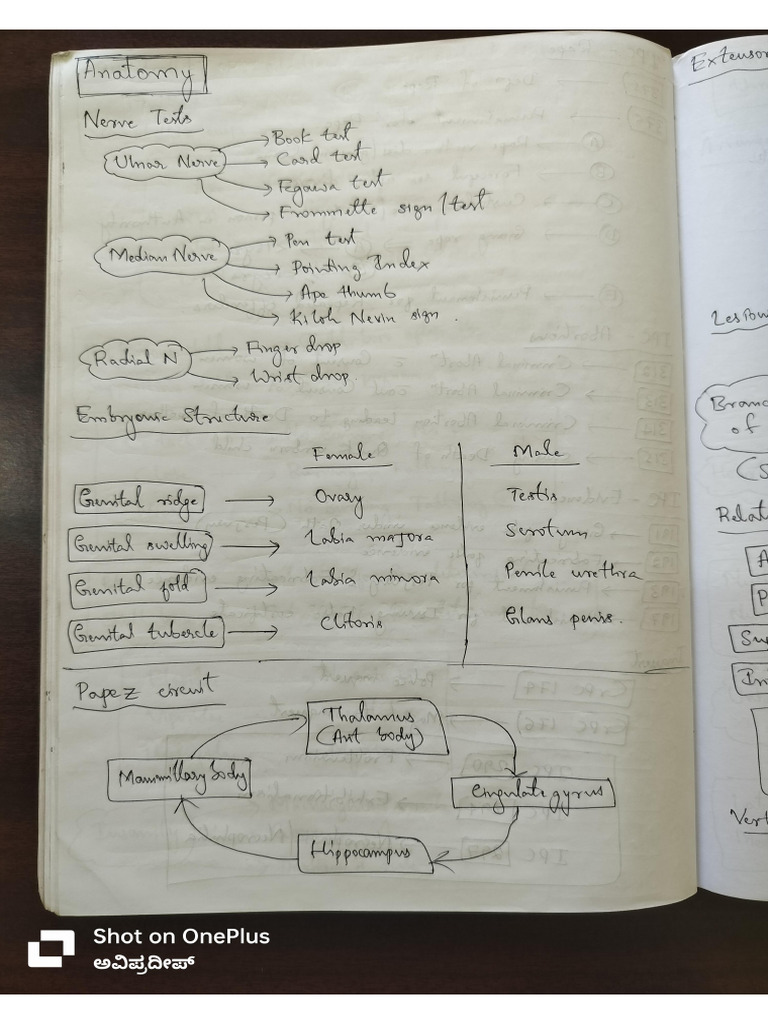 Anatomy
Nerve Tests
Ulnar Nerve
Book test
Card test
Egawa test
Frommette sign/test
Median Nerve
Pen test
Pointing Index
Ape thumb
Kiloh Nevin sign.
Radial N
Finger drop
Wrist drop
Embryonic Structure
Female Male
Genital ridge Ovary Testis
Genital swelling Labia majora Scrotum
Genital fold Labia minora Penile urethra
Genital tubercle Clitoris Glans penis.
Papez circuit
Thalamus
(Ant body)
Mammillary body
Cingulate gyrus
Hippocampus
Extensor
Branc
of
Relat
Vert
Shot on OnePlus
ಅವಿಪ್ರದೀಪ್